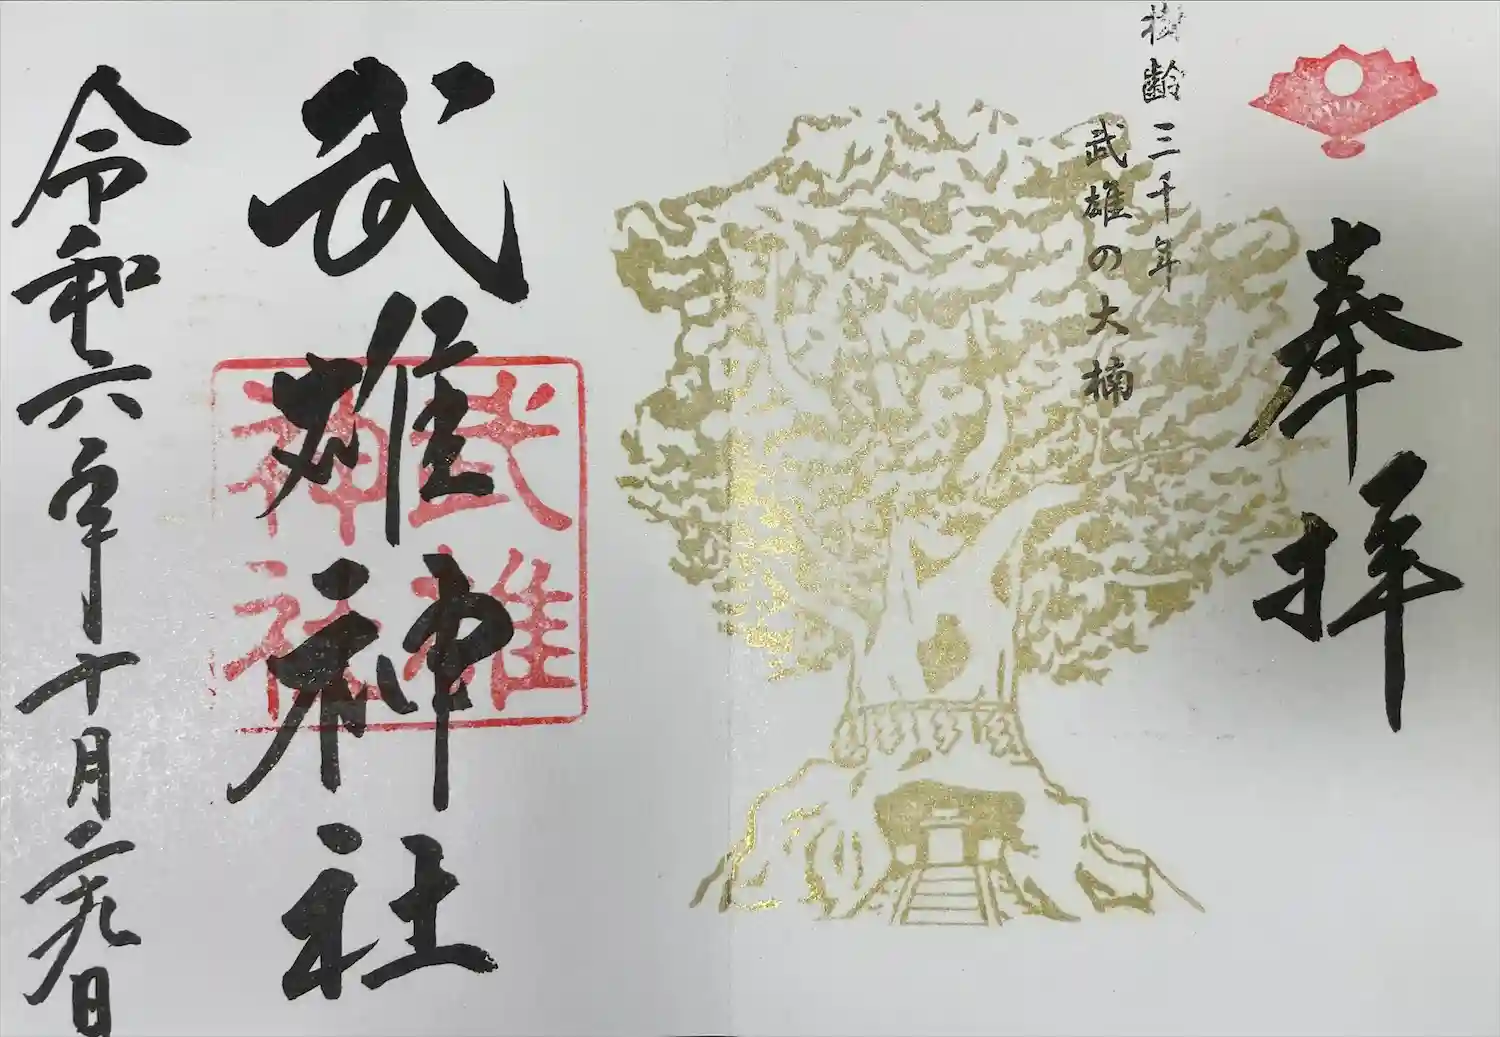 奉拝
樹齢三千年
武雄の大楠
武雄神社
武雄神社
令和六年十月二十九日